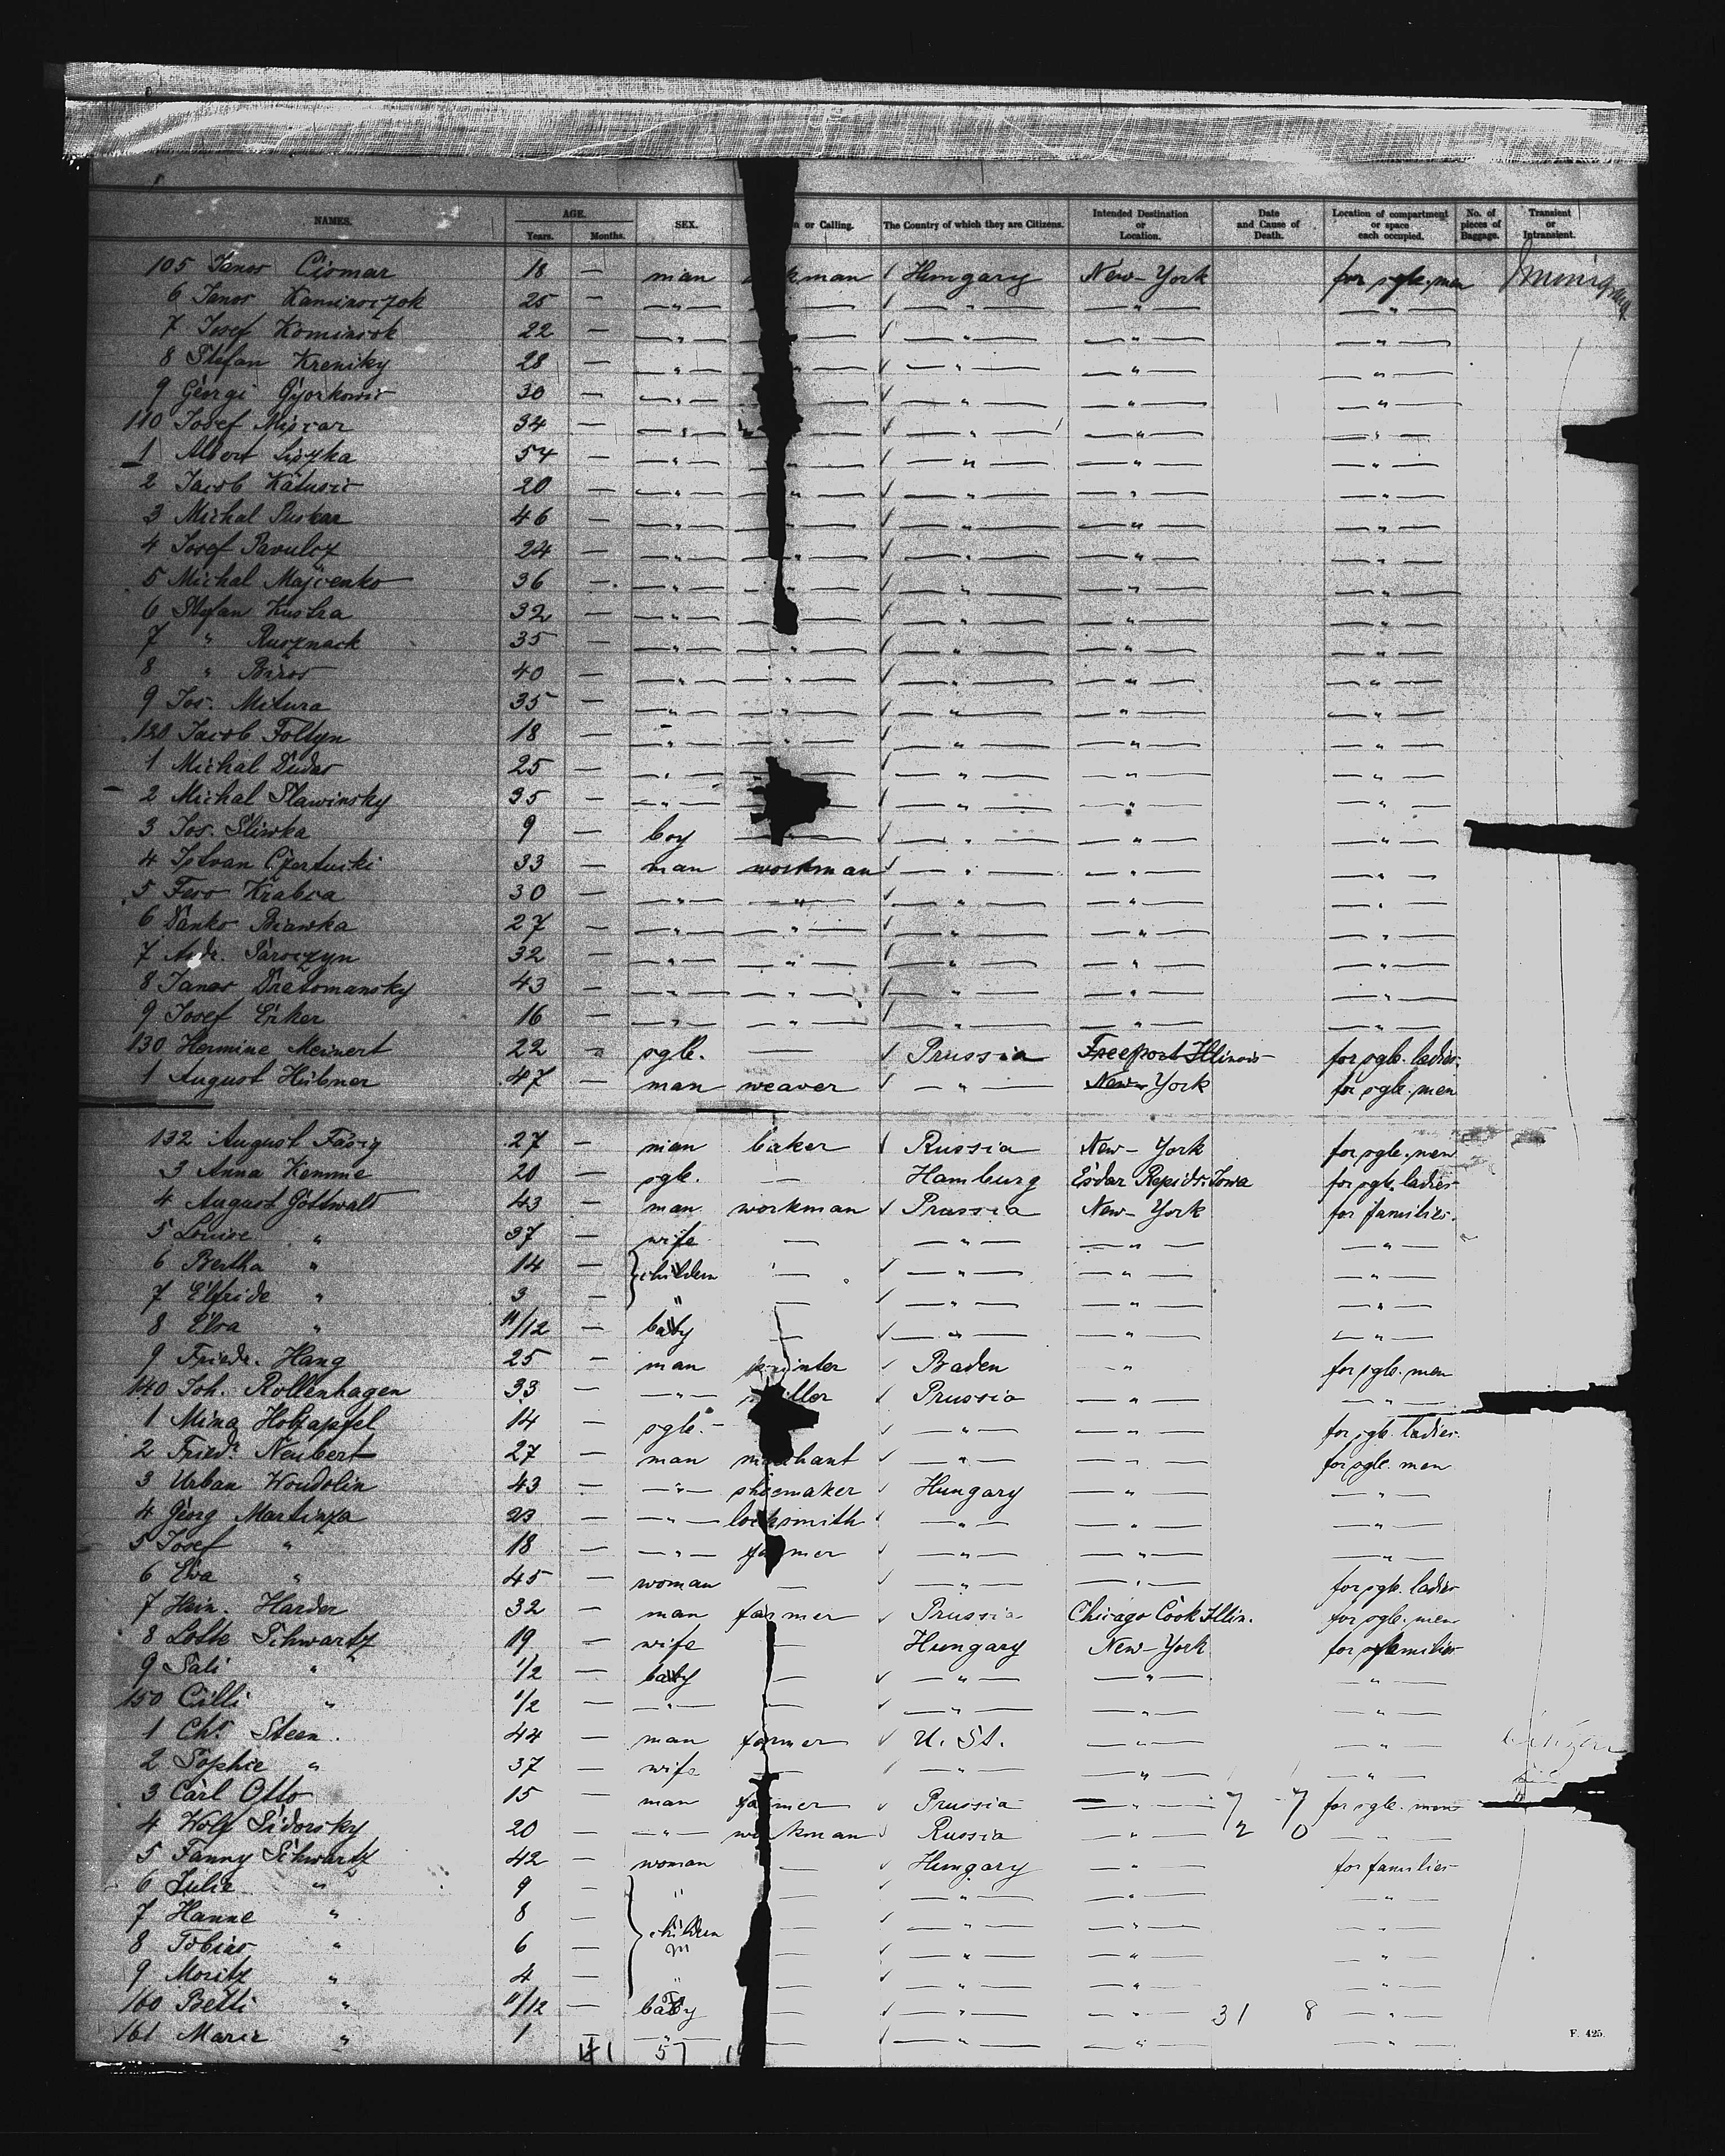 NAMES. AGE. Years. Months. SEX. or Calling. The Country of which they are Citizens. Intended Destination or Location. Date and Cause of Death. Location of compartment or space each occupied. No. of pieces of Baggage. Transient or Intransient.
105 Janos Cismar 18 — man kman ✓ Hungary New-York for sgle. men
6 Janos 25 — —"— ✓ —"— —"— —"—
7 Josef 22 — —"— ✓ —"— —"— —"—
8 Stefan Kreniky 28 — —"— ✓ —"— —"— —"—
9 Georgi 30 — —"— ✓ —"— —"— —"—
110 Josef 34 — —"— ✓ —"— —"— —"—
1 Albert 54 — —"— ✓ —"— —"— —"—
2 Jacob 20 — —"— ✓ —"— —"— —"—
3 Michal Puskar 46 — —"— —"— —"— —"—
4 Josef Pavulcz 24 — —"— ✓ —"— —"— —"—
5 Michal 36 — —"— ✓ —"— —"— —"—
6 Stefan Kustra 32 — —"— ✓ —"— —"— —"—
7 " Rusznack 35 — —"— —"— ✓ —"— —"— —"—
8 " Biros 40 — —"— —"— ✓ —"— —"— —"—
9 Jos. Mitura 35 — —"— —"— ✓ —"— —"— —"—
120 Jacob Foltyn 18 — —"— —"— ✓ —"— —"— —"—
1 Michal Dudas 25 — —"— ✓ —"— —"— —"—
2 Michal Slawinsky 35 — —"— ✓ —"— —"— —"—
3 Jos. Sliwka 9 — boy ✓ —"— —"— —"—
4 Istvan 33 — man workman ✓ —"— —"— —"—
5 Fero 30 — —"— —"— ✓ —"— —"— —"—
6 Danko 27 — —"— —"— ✓ —"— —"— —"—
7 32 — —"— —"— ✓ —"— —"— —"—
8 Janos 43 — —"— —"— ✓ —"— —"— —"—
9 Josef Erker 16 — —"— —"— ✓ —"— —"— —"—
130 Hermine Meinert 22 — sgle. — ✓ Prussia Freeport Illinois for sgle. ladies
1 August Hübner 47 — man weaver ✓ —"— New-York for sgle. men
132 August 27 — man baker ✓ Russia New-York for sgle. men
3 Anna Kemme 20 — sgle. — Hamburg Cedar Repids Iowa for sgle. ladies
4 August Gottwald 43 — man workman ✓ Prussia New-York for families
5 Louise " 37 — wife — —"— —"— —"—
6 Bertha " 14 — children — ✓ —"— —"— —"—
7 Elfride " 3 — " — ✓ —"— —"— —"—
8 Elsa " 11/12 — baby — ✓ —"— —"— —"—
9 Friedr. Hang 25 — man ✓ Baden " for sgle. men
140 Joh. Rollenhagen 33 — —"— ✓ Prussia —"— —"—
1 Mina Holzapfel 14 — sgle. ✓ —"— —"— for sgle. ladies
2 Friedr. Neubert 27 — man merchant ✓ —"— —"— for sgle. men
3 Urban Woudolin 43 — —"— shoemaker ✓ Hungary —"— —"—
4 Georg Martinza 23 — —"— locksmith ✓ —"— —"— —"—
5 Josef " 18 — —"— farmer ✓ —"— —"— —"—
6 Eva " 45 — woman — ✓ —"— —"— for sgle. ladies
7 Hein. Harder 32 — man farmer ✓ Prussia Chicago Cook Illin. for sgle. men
8 Lotte Schwartz 19 — wife — Hungary New-York for families
9 Sali " 1/2 — baby — ✓ —"— —"— —"—
150 Cilli " 1/2 — —"— — ✓ —"— —"— —"—
1 Chs. Steen. 44 — man farmer ✓ U. St. —"— —"—
2 Sophie " 37 — wife — ✓ —"— —"— —"—
3 Carl Otto 15 — man farmer ✓ Prussia —"— for sgle. men
4 Wolf Sidorsky 20 — —"— workman ✓ Russia —"— —"—
5 Fanny Schwartz 42 — woman — ✓ Hungary —"— for families
6 Julie " 9 — " — ✓ —"— —"— —"—
7 Hanne " 8 — children — ✓ —"— —"— —"—
8 Tobias " 6 — — ✓ —"— —"— —"—
9 Moritz " 4 — " — ✓ —"— —"— —"—
160 Betti " 11/12 — baby — ✓ —"— —"— 31 8 —"—
161 Marie " 1 — —"— — ✓ —"— —"— —"—
41 57
F. 425.